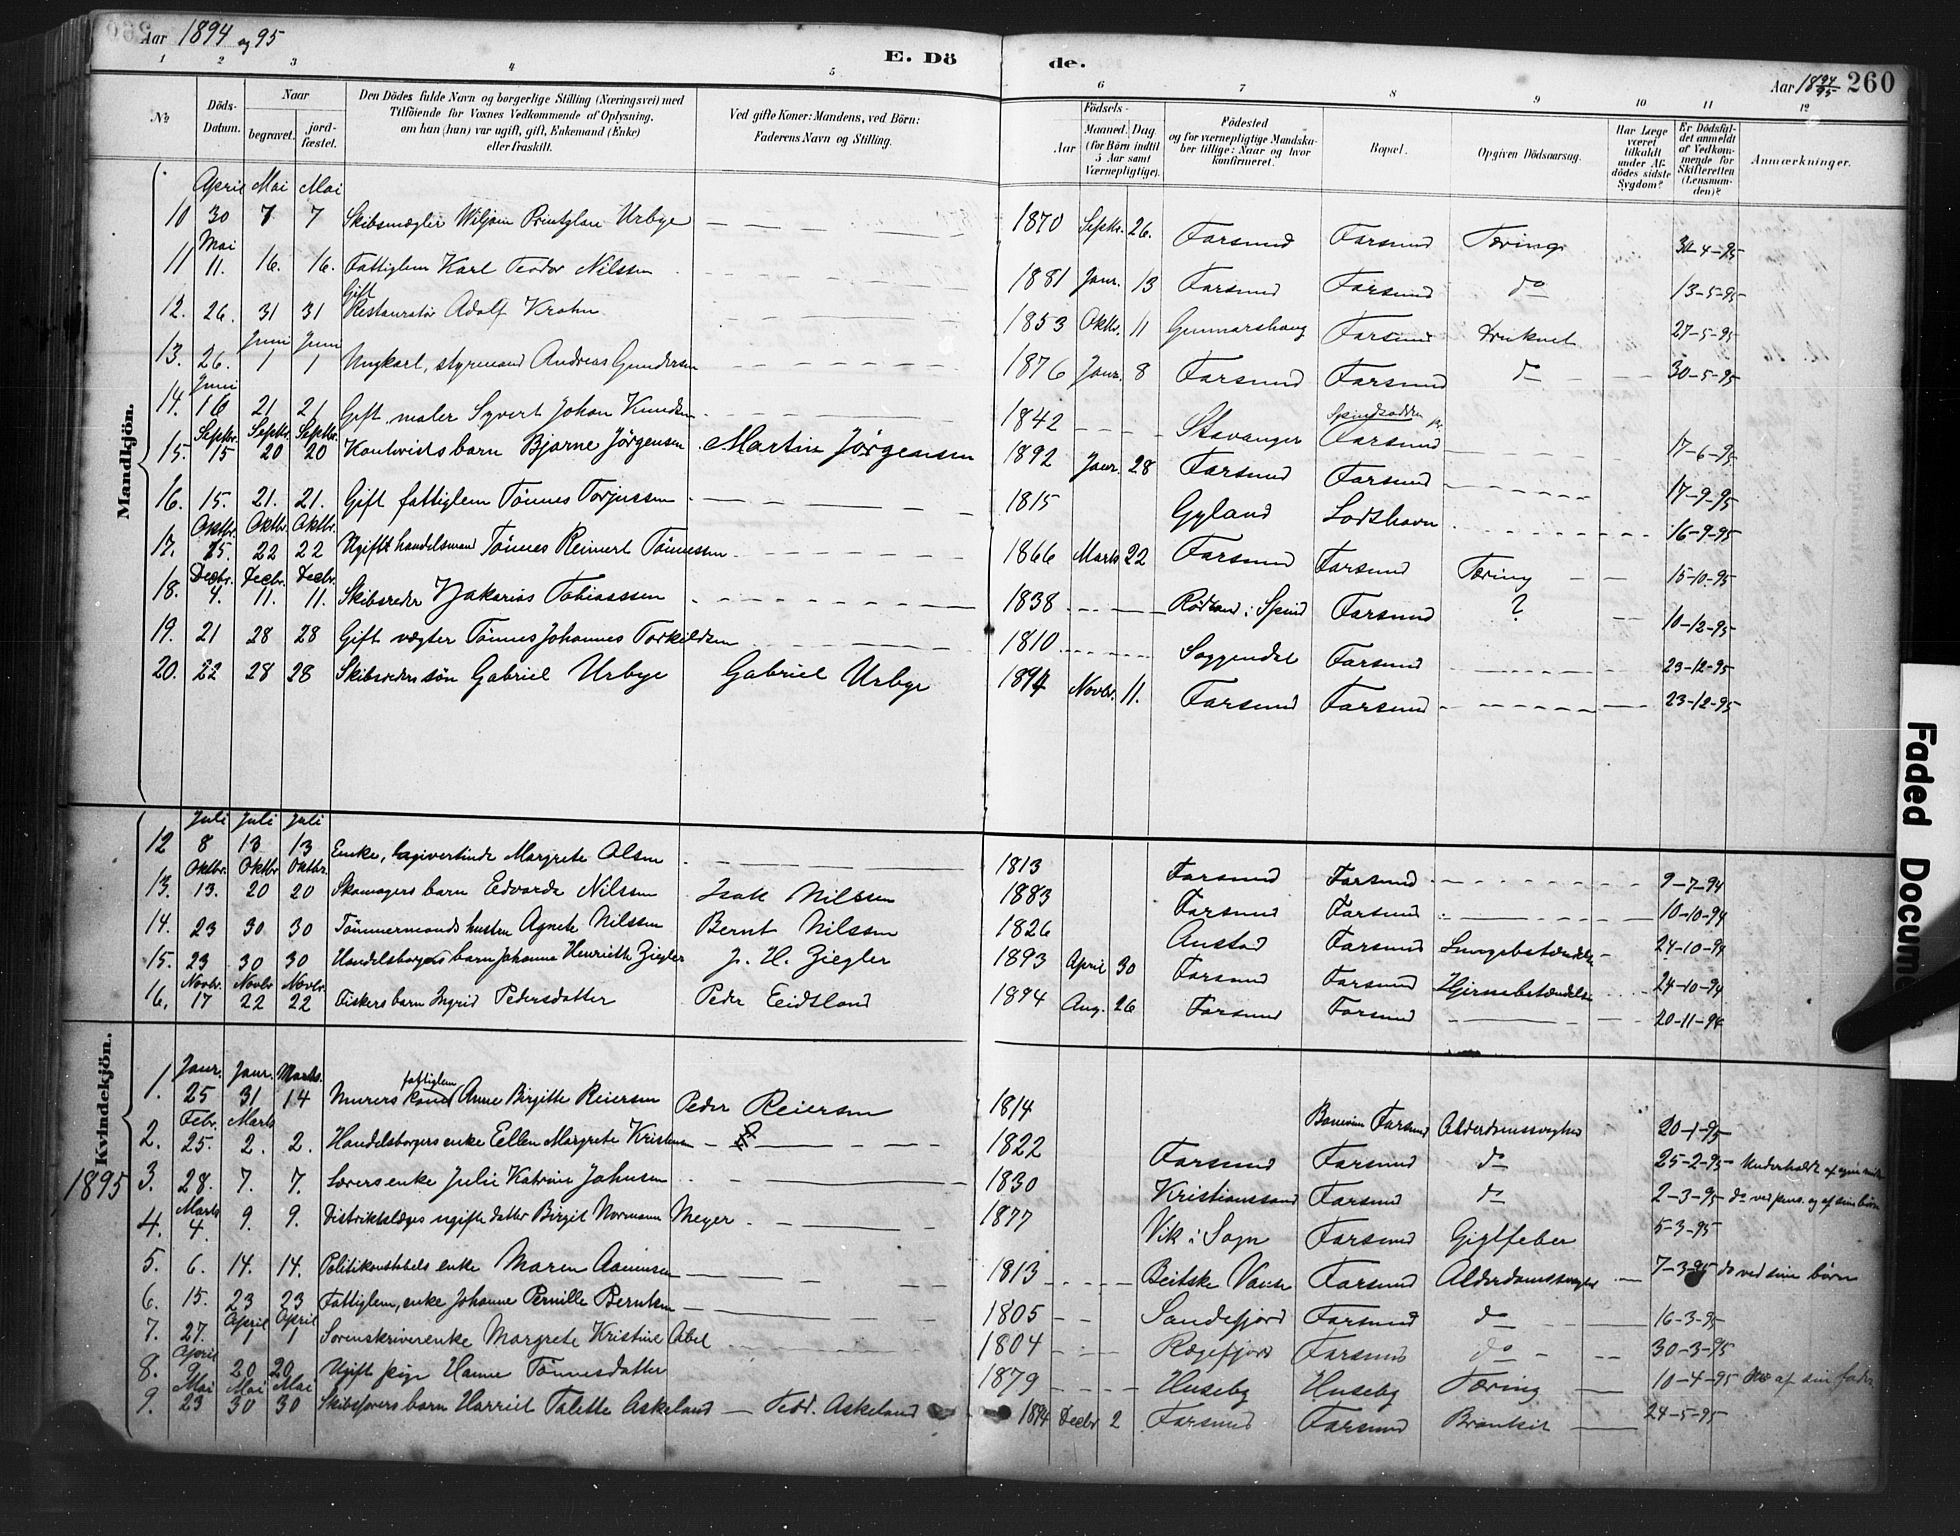 Aar 1894 og 95
E. Döde.
Aar 1894/95 260
1 2 3 4 5 6 7 8 9 10 11 12
No
Döds-Datum.
Naar
begravet.
jord-fæstet.
Den Dödes fulde Navn og borgerlige Stilling (Næringsvei) med
Tilföiende for Voxnes Vedkommende af Oplysning,
om han (hun) var ugift, gift, Enkemand (Enke)
eller fraskilt.
Ved gifte Koner: Mandens, ved Börn:
Faderens Navn og Stilling.
Födsels-
Aar
Maaned. Dag
(for Börn indtil
5 Aar samt
Værnepligtige).
Födested
og for værnepligtige Mandska-
ber tillige: Naar og hvor
konfirmeret.
Bopæl.
Opgiven Dödsaarsag.
Har Læge
været
tilkaldt
under Af-
dödes sidste
Sygdom?
Er Dödsfal-
det anmeldt
af Vedkom-
mende for
Skifteretten
(Lensman-
den)?
Anmærkninger.
Mandkjön.
April Mai Mai
10 30 7 7 Skibsmægler Wiljam Printzlau Urbye 1870 Septbr. 26. Farsund Farsund Tæring 30-4-95
Mai
11 11. 16. 16. Fattiglem Karl Teodor Nilssen 1881 Janr. 13 Farsund Farsund do 13-5-95
Gift
12. 26. 31 31 Restauratør Adolf Krohn 1853 Oktbr. 11 Gunnarshaug Farsund Druknet 27-5-95
Juni Juni
13. 26. 1 1 Ungkarl, styrmand Andreas Gundersen 1876 Janr. 8 Farsund Farsund do 30-5-95
Juni
14. 16 21 21 Gift maler Syvert Johan Knudsen 1842 Stavanger Spindsodden Farsund 17-6-95
Septbr. Septbr. Septbr.
15. 15 20 20 barn Bjarne Jörgensen Martin Jörgensen 1892 Janr. 28 Farsund Farsund 17-9-95
16. 15. 21. 21. Gift fattiglem Tönnes Torjussen 1815 Gyland Lodshavn 16-9-95
Oktbr. Oktbr. Oktbr.
17. 15. 22 22 Ugift handelsmand Tönnes Reinert Tönnessen 1866 Marts 22 Farsund Farsund Tæring 15-10-95
Decbr. Decbr. Decbr.
18. 4. 11. 11. Skibsreder Zakarias Tobiassen 1838 i Spind Farsund ? 10-12-95
19. 21 28 28 Gift vægter Tönnes Johannes Torkildsen 1810 Soggendal Farsund 23-12-95
20. 22 28 28 Skibsreders sön Gabriel Urbye Gabriel Urbye 1894 Novbr. 11. Farsund Farsund 23-12-95
Kvindekjön.
Juli Juli Juli
12 8 13 13 Enke, logivertinde Margrete Olsen 1813 Farsund Farsund 9-7-94
Oktbr. Oktbr Oktbr.
13. 13. 20 20 Skomagers barn Edvarda Nilssen Isak Nilssen 1883 Farsund Farsund 10-10-94
14. 23 30 30 Tömmermands hustru Agnete Nilssen Bernt Nilssen 1826 Austad Farsund Lungebetændelse 24-10-94
15. 23 30 30 Handelsborgers barn Johanna Henriette Ziegler J. H. Ziegler 1893 April 30 Farsund Farsund Hjernebetændelse 24-10-94
Novbr. Novbr Novbr.
16. 17 22 22 Fiskers barn Ingrid Pedersdatter Peder Eidsland 1894 Aug. 26 Farsund Farsund 20-11-94
1895
Janr. Janr. Marts.
1. 25 31 14 Murers fattiglem kone Anne Birgitte Reiersen Peder Reiersen 1814 Farsund Alderdomssvaghed 20-1-95
Febr. Marts
2. 25. 2. 2. Handelsborgers enke Ellen Margrete Kristensen 1822 Farsund Farsund do 25-2-95 Underholdt af egne midler
3. 28. 7. 7. Lærers enke Julie Katrine Johnsen 1830 Kristianssand Farsund do 2-3-95 do ved pens. og af sine börn
Marts
4. 4. 9. 9. Distriktslæges ugifte datter Birgit Normann Meyer 1877 Vik i Sogn Farsund Gigtfeber 5-3-95
5. 6. 14. 14. Politikonstabels enke Maren Aanensen 1813 Vanse Farsund Alderdomssvaghed 7-3-95 do ved sine börn
6. 15. 23 23 Fattiglem, enke Johanne Pernille Berntsen 1805 Sandefjord Farsund do 16-3-95
April April
7. 27. 1 1 Sorenskriverenke Margrete Kristine Abel 1804 Rægefjord Farsund do 30-3-95
April
8. 9 20 20 Ugift pige Hanne Tönnesdatter 1879 Huseby Huseby Tæring 10-4-95 af sin fader
Mai Mai Mai
9. 23 30 30 Skibsførers barn Harriet Talette Askeland Teod. Askeland 1894 Decbr 2 Farsund Farsund Bronkit 24-5-95
Faded Docum